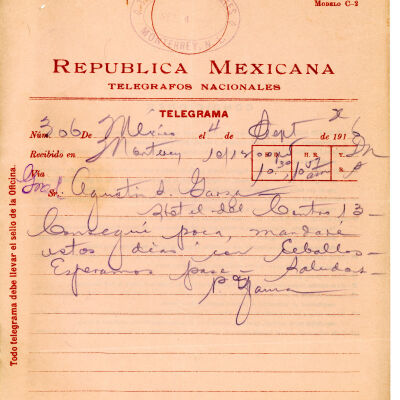 MODELO C-2
MONTERREY, N.L.
REPUBLICA MEXICANA
TELEGRAFOS NACIONALES
TELEGRAMA
Núm. 306 De México el 4 de Sept de 191
Recibido en Monterrey 10/12
Via
Sr. Agustín Garza
Hotel del Centro 13
Conseguí poca, mandaré
estos dias con Ceballos
Esperamos pase Saludos
P. Gauna
Todo telegrama debe llevar el sello de la Oficina.